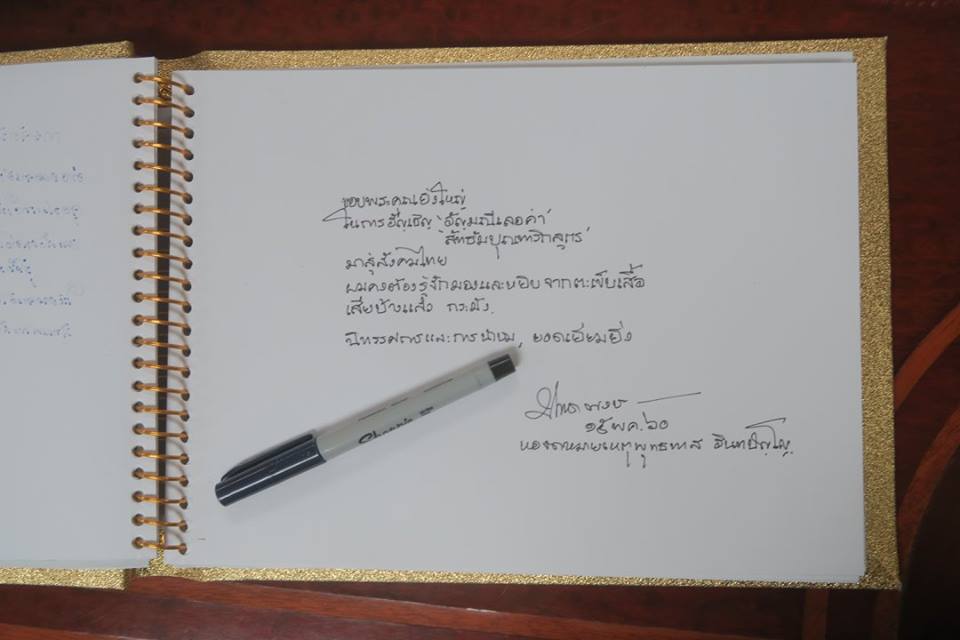 ขอบพระคุณยิ่งใหญ่
ในการอัญเชิญ 'อัญมณีเลอค่า'
'สัทธัมปุณฑริกสูตร'
มาสู่สังคมไทย
ผมคงต้องรู้จักมองและหยิบจากตะเข็บเสื้อ
เสียบ้างแล้ว กระมัง.
นิทรรศการและการนำชม, ยอดเยี่ยมยิ่ง
๑๕ พค. ๖๐
หอจดหมายเหตุพุทธทาส อินทปัญโญ
Sharpie